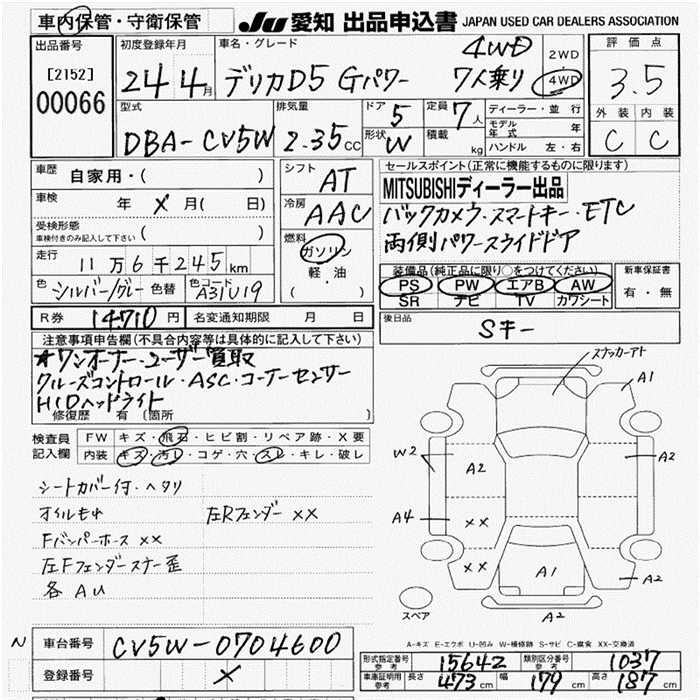 車内保管・守衛保管
JU 愛知 出品申込書 JAPAN USED CAR DEALERS ASSOCIATION
出品番号
[2152]
00066
初度登録年月
24 4月
車名・グレード
デリカD5 Gパワー
4WD
7人乗り
2WD
4WD
評価点
3.5
外装 内装
C C
型式
DBA-CV5W
排気量
2.35CC
ドア 5
形状 W
定員 7人
積載 kg
ディーラー・並行
モデル年式 年
ハンドル 左・右
車歴 自家用・( )
車検 年 X 月( 日)
受検形態
車検付きのみ記入して下さい ( )
走行 11万6千245km
色 シルバー/グレー 色替 色コード A31U19
シフト AT
冷房 AAC
燃料
ガソリン
軽・油
( )
セールスポイント(正常に機能するものに限ります)
MITSUBISHIディーラー出品
バックカメラ・スマートキー・ETC
両側パワースライドドア
装備品(純正品に限り○をつけてください)
PS PW エアB AW
SR ナビ TV カワシート
新車保証書
有・無
R券 14710円 名変通知期限 月 日
後日品 Sキー
注意事項申告欄(不具合内容等は具体的に記入して下さい)
★ワンオーナー・ユーザー買取
クルーズコントロール・ASC・コーナーセンサー
HIDヘッドライト
修復歴 有 〔箇所 〕
検査員記入欄
FW キズ・飛石・ヒビ割・リペア跡・X要
内装 キズ・汚レ・コゲ・穴・スレ・キレ・破レ
シートカバー付・ヘタリ
オイルモレ 左Rフェンダー XX
Fバンパーホース XX
左Fフェンダーステー歪
各AU
スナッカーアト
A1
W2
A2
A2
A4
XX
XX
A1
A2
A2
スペア
A-キズ E-エクボ U-凹み W-補修跡 S-サビ C-腐食 XX-交換済
N 車台番号 CV5W-0704600
登録番号 X
形式指定番号 参考 15642 類別区分番号 参考 1037
車庫証明用 参考 長さ 473cm 幅 179cm 高さ 187cm